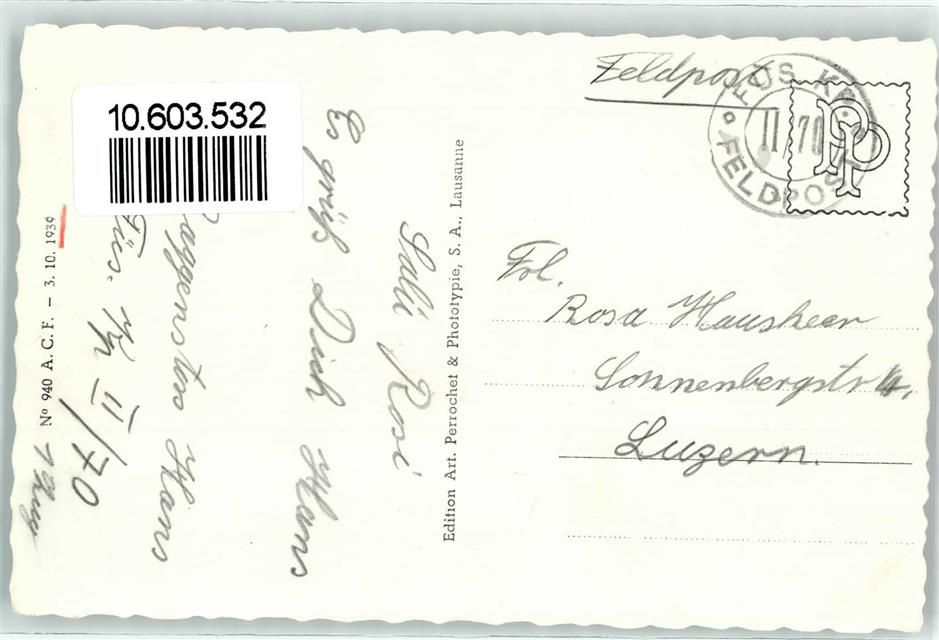 10.603.532
Feldpost
FÜS. KP.
II/70
FELDPOST
PP
Frl.
Rosa Hausheer
Sonnenbergstr.
Luzern.
Edition Art. Perrochet & Phototypie, S. A., Lausanne
Salü Rosi
Es grüßt Dich Hans
Hans
Füs. Kp II/70
Nº 940 A. C. F. — 3. 10. 1939